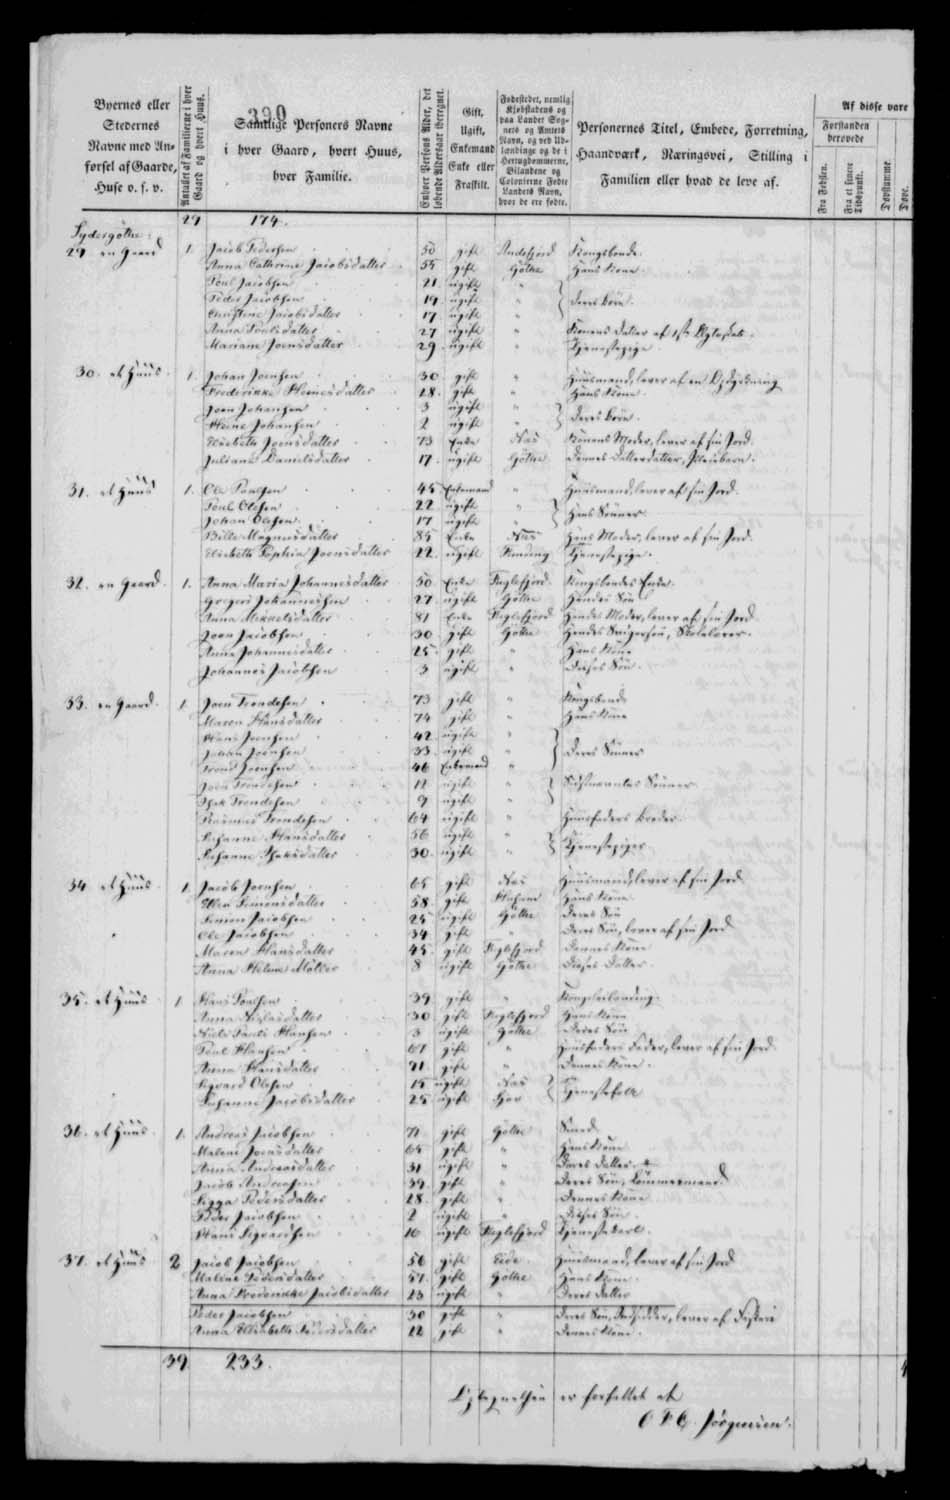 390
Byernes eller
Stedernes
Navne med An-
førsel af Gaarde,
Huse o. s. v.
Antallet af Familierne i hver
Gaard og hvert Huus.
Samtlige Personers Navne
i hver Gaard, hvert Huus,
hver Familie.
Enhver Persons Alder, det
løbende Aldersaar iberegnet.
Gift,
Ugift,
Enkemand
Enke eller
Fraskilt.
Fødestedet, nemlig
Kjøbstadens og
paa Landet Sog-
nets og Amtets
Navn, og ved Ud-
lændinge og de i
Hertugdømmerne,
Bilandene og
Colonierne Fødte
Landets Navn,
hvor de ere fødte.
Personernes Titel, Embede, Forretning,
Haandværk, Næringsvei, Stilling i
Familien eller hvad de leve af.
Af disse vare
Forstanden
berovede
Fra Fødslen.
Fra et senere
Tidspunkt.
Døvstumme.
Døve.
29 174.
Sydergøthe:
29 en Gaard 1. Jacob Pedersen 50 gift Andefjord Kongsbonde.
Anna Cathrine Jacobsdatter 55 gift Gøthe Hans Kone
Poul Jacobsen 21 ugift "
Peder Jacobsen 19 ugift " Deres Børn
Christine Jacobsdatter 17 ugift "
Anna Poulsdatter 27 ugift " Konens Datter af 1ste Ægteskab.
Mariane Joensdatter 29 ugift " Tjenestepige
30. et Huus 1. Johan Joensen 30 gift " Huusmand, lever af
Frederikke Hansdatter 28 gift " Hans Kone
Joen Johansen 3 ugift "
Johansen 2 ugift " Deres Børn.
Elsebeth Joensdatter 73 Enke Næs Konens Moder, lever af sin Jord.
Juliane Danielsdatter 17 ugift Gøthe Dennes Datterdatter, Pleiebarn.
31. et Huus 1. Ole Poulsen 45 Enkemand " Huusmand, lever af sin Jord.
Poul Olesen 22 ugift "
Johan Olesen 17 ugift " Hans Sønner.
Bille Magnusdatter 85 Enke Næs Hans Moder, lever af sin Jord.
Elsebeth Sophia Joensdatter 22 ugift Tjenestepige.
32. en Gaard 1. Anna Maria Johannesdatter 50 Enke Fuglefjord Kongsbondes Enke.
Johannesen 27 ugift Gøthe Hendes Søn
Anna Mikkelsdatter 81 Enke Fuglefjord Hendes Moder, lever af sin Jord
Joen Jacobsen 30 gift Gøthe Hendes Svigersøn, Skolelærer.
Anna Johannesdatter 25 gift " Hans Kone
Johannes Jacobsen 3 ugift " Disses Søn.
33. en Gaard 1. Joen Trondesen 73 gift " Kongsbonde
Maren Hansdatter 74 gift " Hans Kone
Hans Joensen 42 ugift "
Johan Joensen 33 ugift " Deres Sønner
Trond Joensen 46 Enkemand "
Joen Trondesen 12 ugift " Sidstnævntes Sønner
Isak Trondesen 9 ugift "
Rasmus Trondesen 64 ugift " Huusfaders Broder.
Susanne Hansdatter 56 ugift "
Susanne Isaksdatter 30 ugift " Tjenestepiger
34 et Huus 1. Jacob Joensen 65 gift Næs Huusmand, lever af sin Jord
Ellen Simonsdatter 58 gift Hans Kone
Simon Jacobsen 25 ugift Gøthe Deres Søn
Ole Jacobsen 34 gift " Deres Søn, lever af sin Jord
Maren Hansdatter 45 gift Fuglefjord Dennes Kone
Anna Helene 8 ugift Gøthe Disses Datter.
35. et Huus 1. Hans Poulsen 39 gift "
Anna Niclasdatter 30 gift Fuglefjord Hans Kone
Hansen 3 ugift Gøthe Deres Søn
Poul Hansen 67 gift " Huusfaders Fader, lever af sin Jord.
Anna Hansdatter 71 gift " Dennes Kone.
Sigvard Olesen 15 ugift Næs
Susanne Jacobsdatter 25 ugift Tjenestefolk
36. et Huus 1. Andreas Jacobsen 71 gift Gøthe Smed
Malene Joensdatter 65 gift " Hans Kone
Anna Andreasdatter 31 ugift " Deres Datter.
Jacob Andreasen 39 gift " Deres Søn, Tømmermand
Sigga Pedersdatter 28 gift " Dennes Kone
Peder Jacobsen 2 ugift " Disses Søn.
Hans Sigvardsen 16 ugift Fuglefjord Tjenestekarl.
37. et Huus 2 Jacob Jacobsen 56 gift Eide Huusmand, lever af sin Jord
Malene Pedersdatter 57 gift Gøthe Hans Kone
Anna Frederikke Jacobsdatter 23 ugift " Deres Datter
Peder Jacobsen 30 gift " Deres Søn, Indsidder, lever af Fiskeri
Anna Elisabeth Pedersdatter 22 gift " Dennes Kone.
39 233.
er forfattet af
Jørgensen.